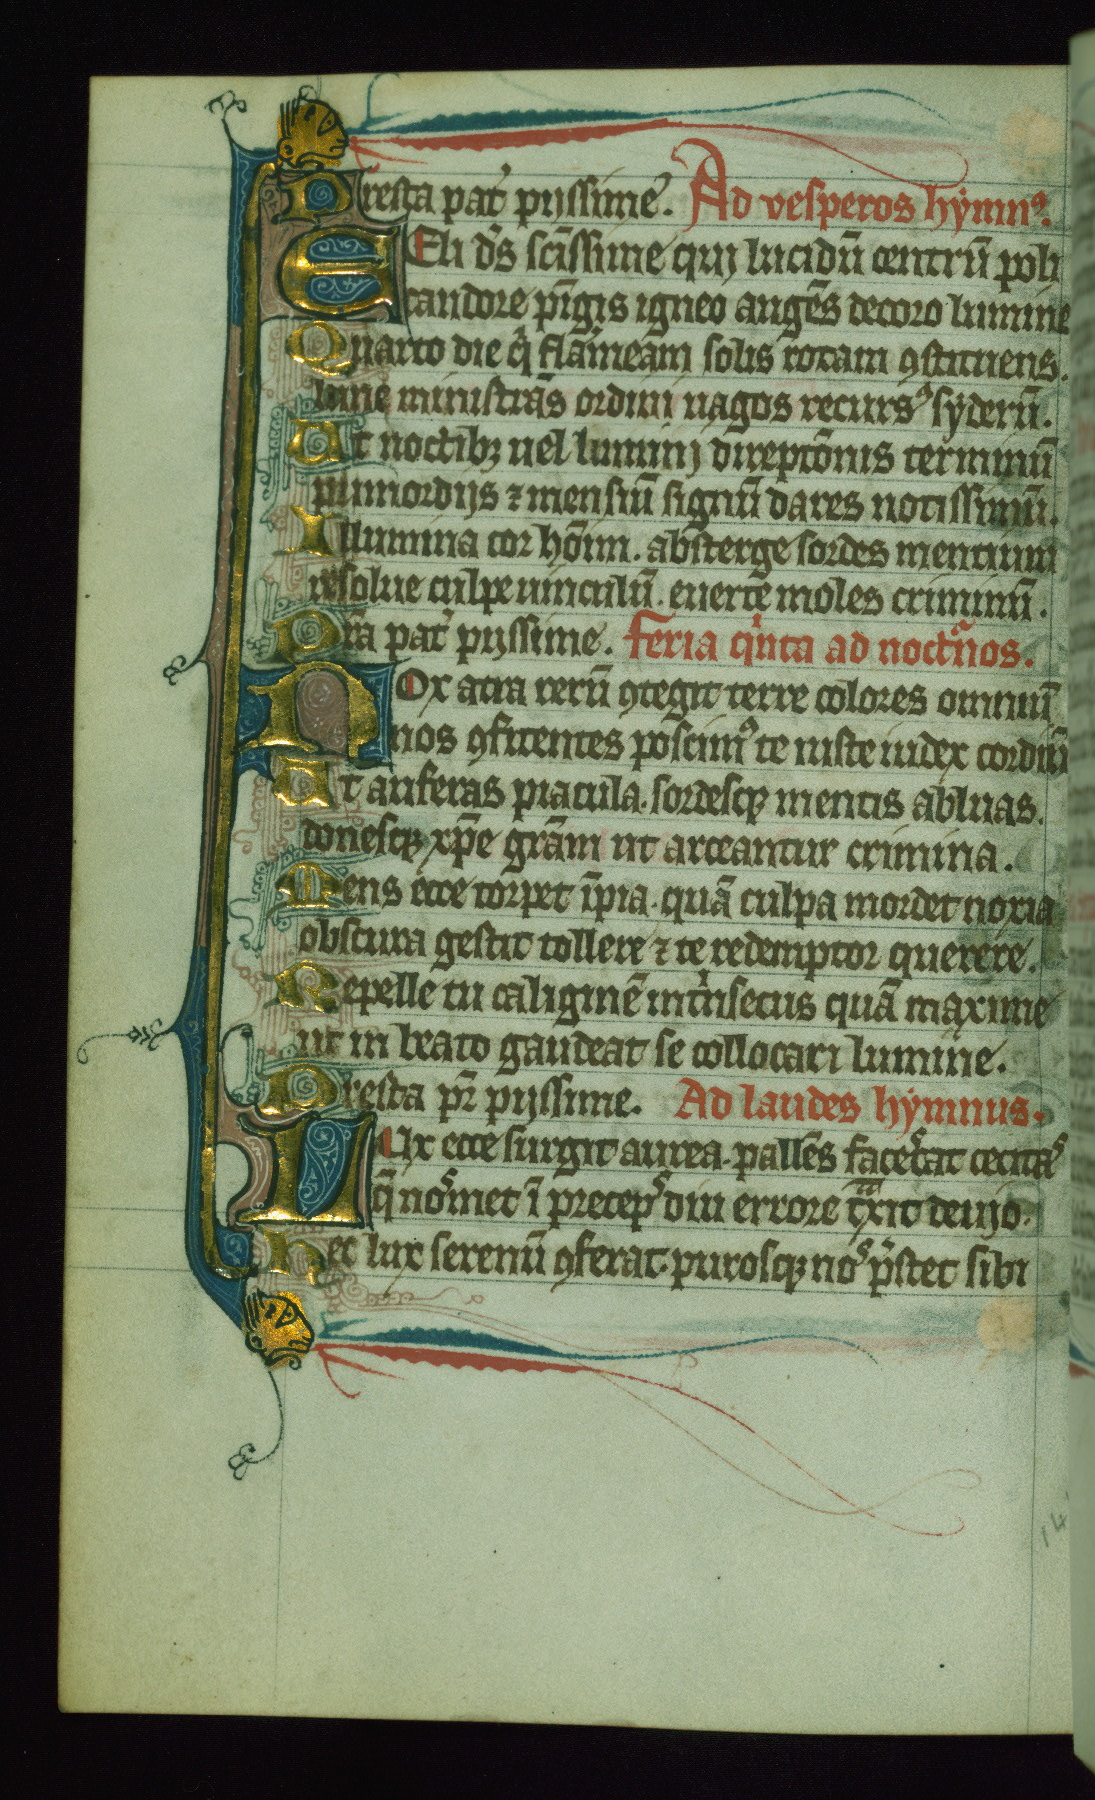 Presta pat᷒ pijssime. Ad vesperos hymnꝰ.
CEli dꝰs scīssime quij lucidū centrū poli
candore pīgis igneo augēs decoro lumine
Quarto die q̄ flāmeam solis rotam ꝯstituens.
lune ministrās ordini uagos recursꝰ syderū.
Ut noctibꝫ uel luminij direptōnis terminū
primordijs ⁊ mensiū signū dares notissimū.
Illumina cor hōim. absterge sordes mentium
resolue culpe uinculū. euerte moles criminū.
Pꝛ̄a pat᷒ pijssime. Feria qͥnta ad noctͬnos.
NOx atra rerū ꝯtegit terre colores omniū
nos ꝯfitentes poscimꝰ te iuste iudex cordiū
Ut auferas piacula. sordesqꝫ mentis abluas.
donesqꝫ xp̄e grām ut arceantur crimina.
Mens ecce torpet īpia. quā culpa mordet noxia
obscura gestit tollere ⁊ te redemptor querere.
Repelle tu caliginē intͥnsecus quā maxime
ut in beato gaudeat se collocari lumine.
Presta pr̄ pijssime. Ad laudes hymnus.
LUx ecce surgit aurea. pallēs facesͨat cecitaꝰ
q̄ noꝰmet ī precepꝰ diu errore tͣxit deuio.
Hec lux serenū ꝯferat. purosqꝫ noꝰ p̄stet sibi
14